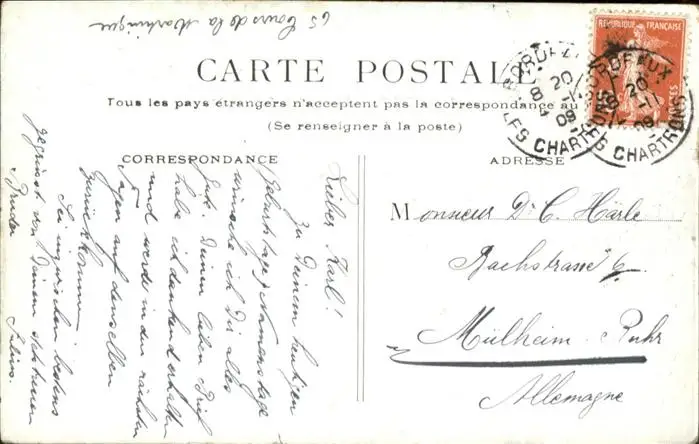 65 Cours de la Martinique
CARTE POSTALE
Tous les pays étrangers n'acceptent pas la correspondance au
(Se renseigner à la poste)
CORRESPONDANCE
Lieber Karl!
Zu Deinem heutigen
Geburtstage, Namenstage
wünsche ich Dir alles
Gute. Deinen lieben Brief
habe ich dankend erhalten
und werde in den nächsten
Tagen auf denselben
zurückkommen.
Sei inzwischen bestens
gegrüsst von Deinem
Bruder Julius.
ADRESSE
Monsieur Dr C. Härle
Bachstrasse 6
Mülheim-Ruhr
Allemagne
REPUBLIQUE FRANÇAISE
BORDEAUX
8 20
-11
09
LES CHARTRONS
BORDEAUX
8 20
-11
09
LES CHARTRONS